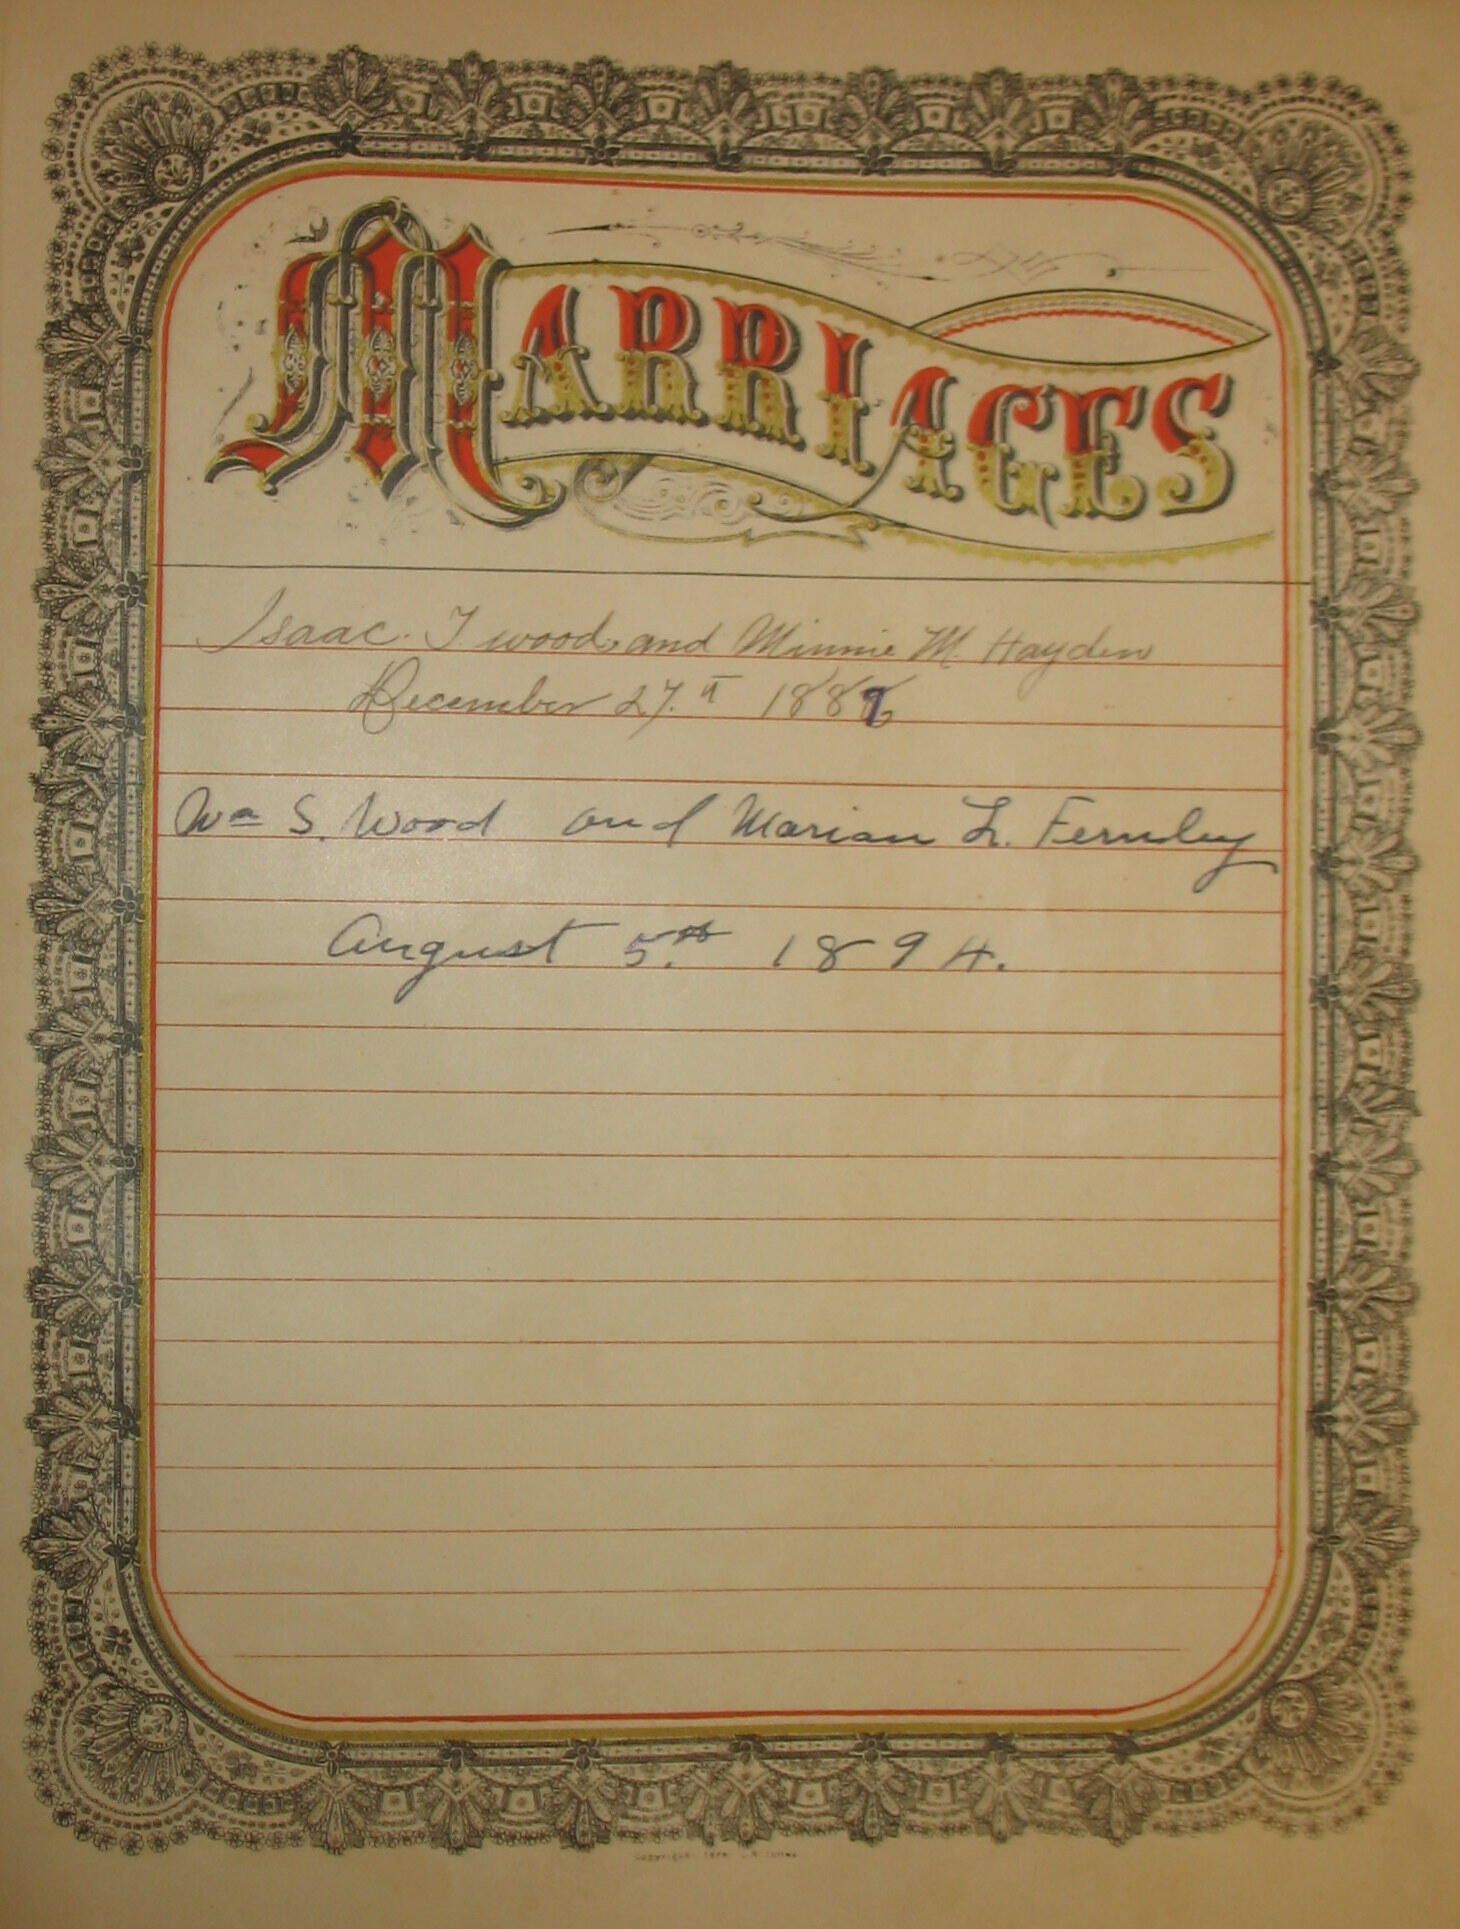 MARRIAGES
Isaac. T wood, and Minnie M. Hayden
December 27.th
Wm S. Wood and Marian L. Fernley
August 5.th 1894.
Copyright